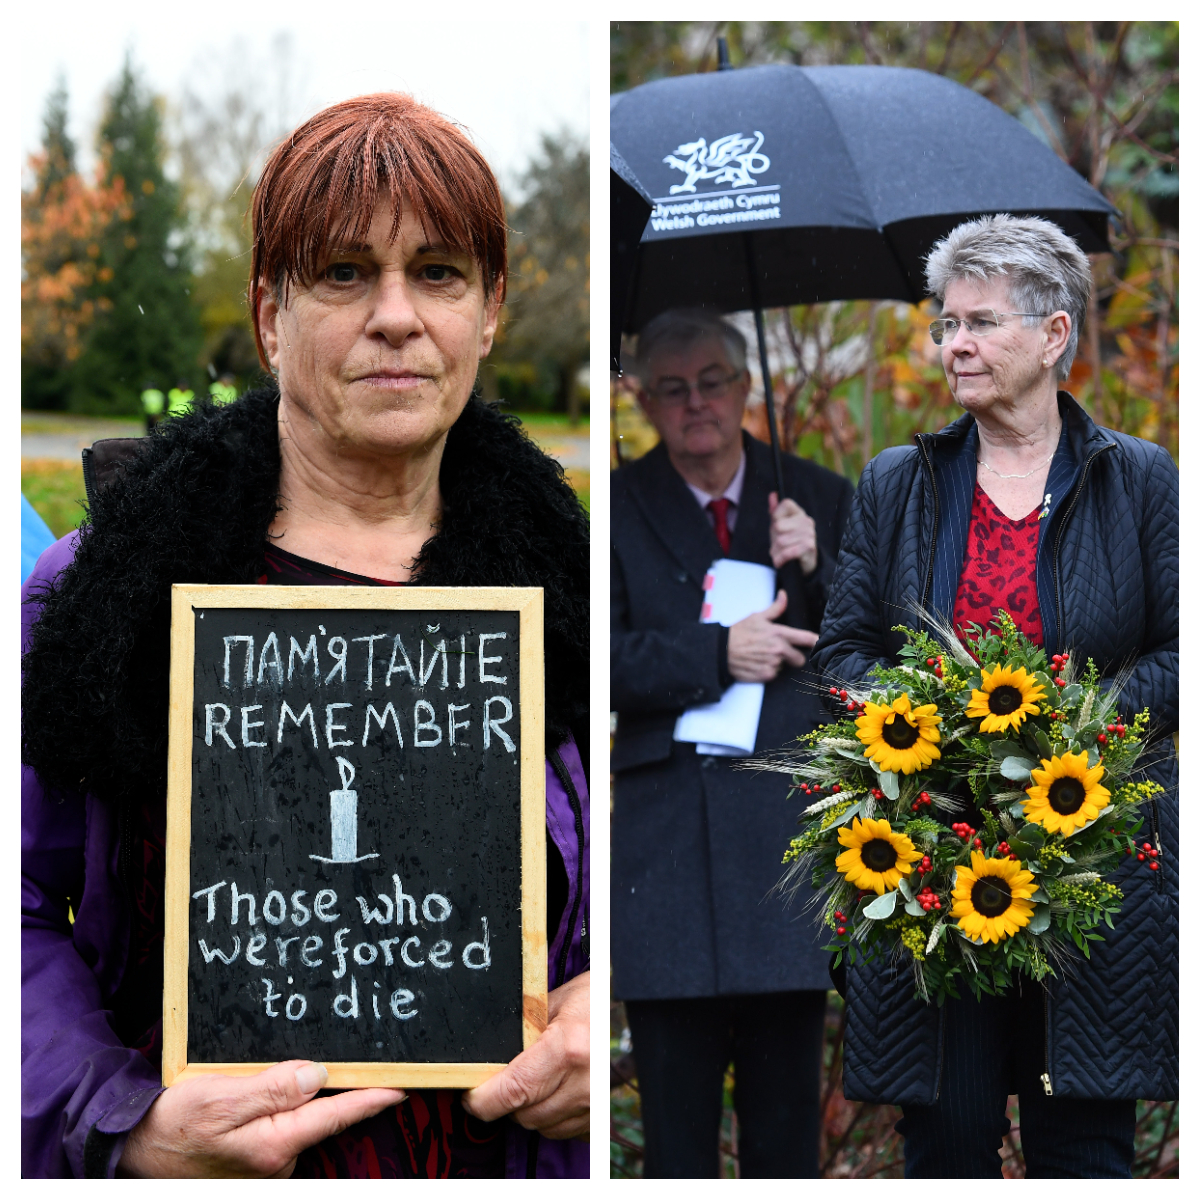 ПАМ'ЯТАЙТЕ
REMEMBER
Those who
were forced
to die
Llywodraeth Cymru
Welsh Government